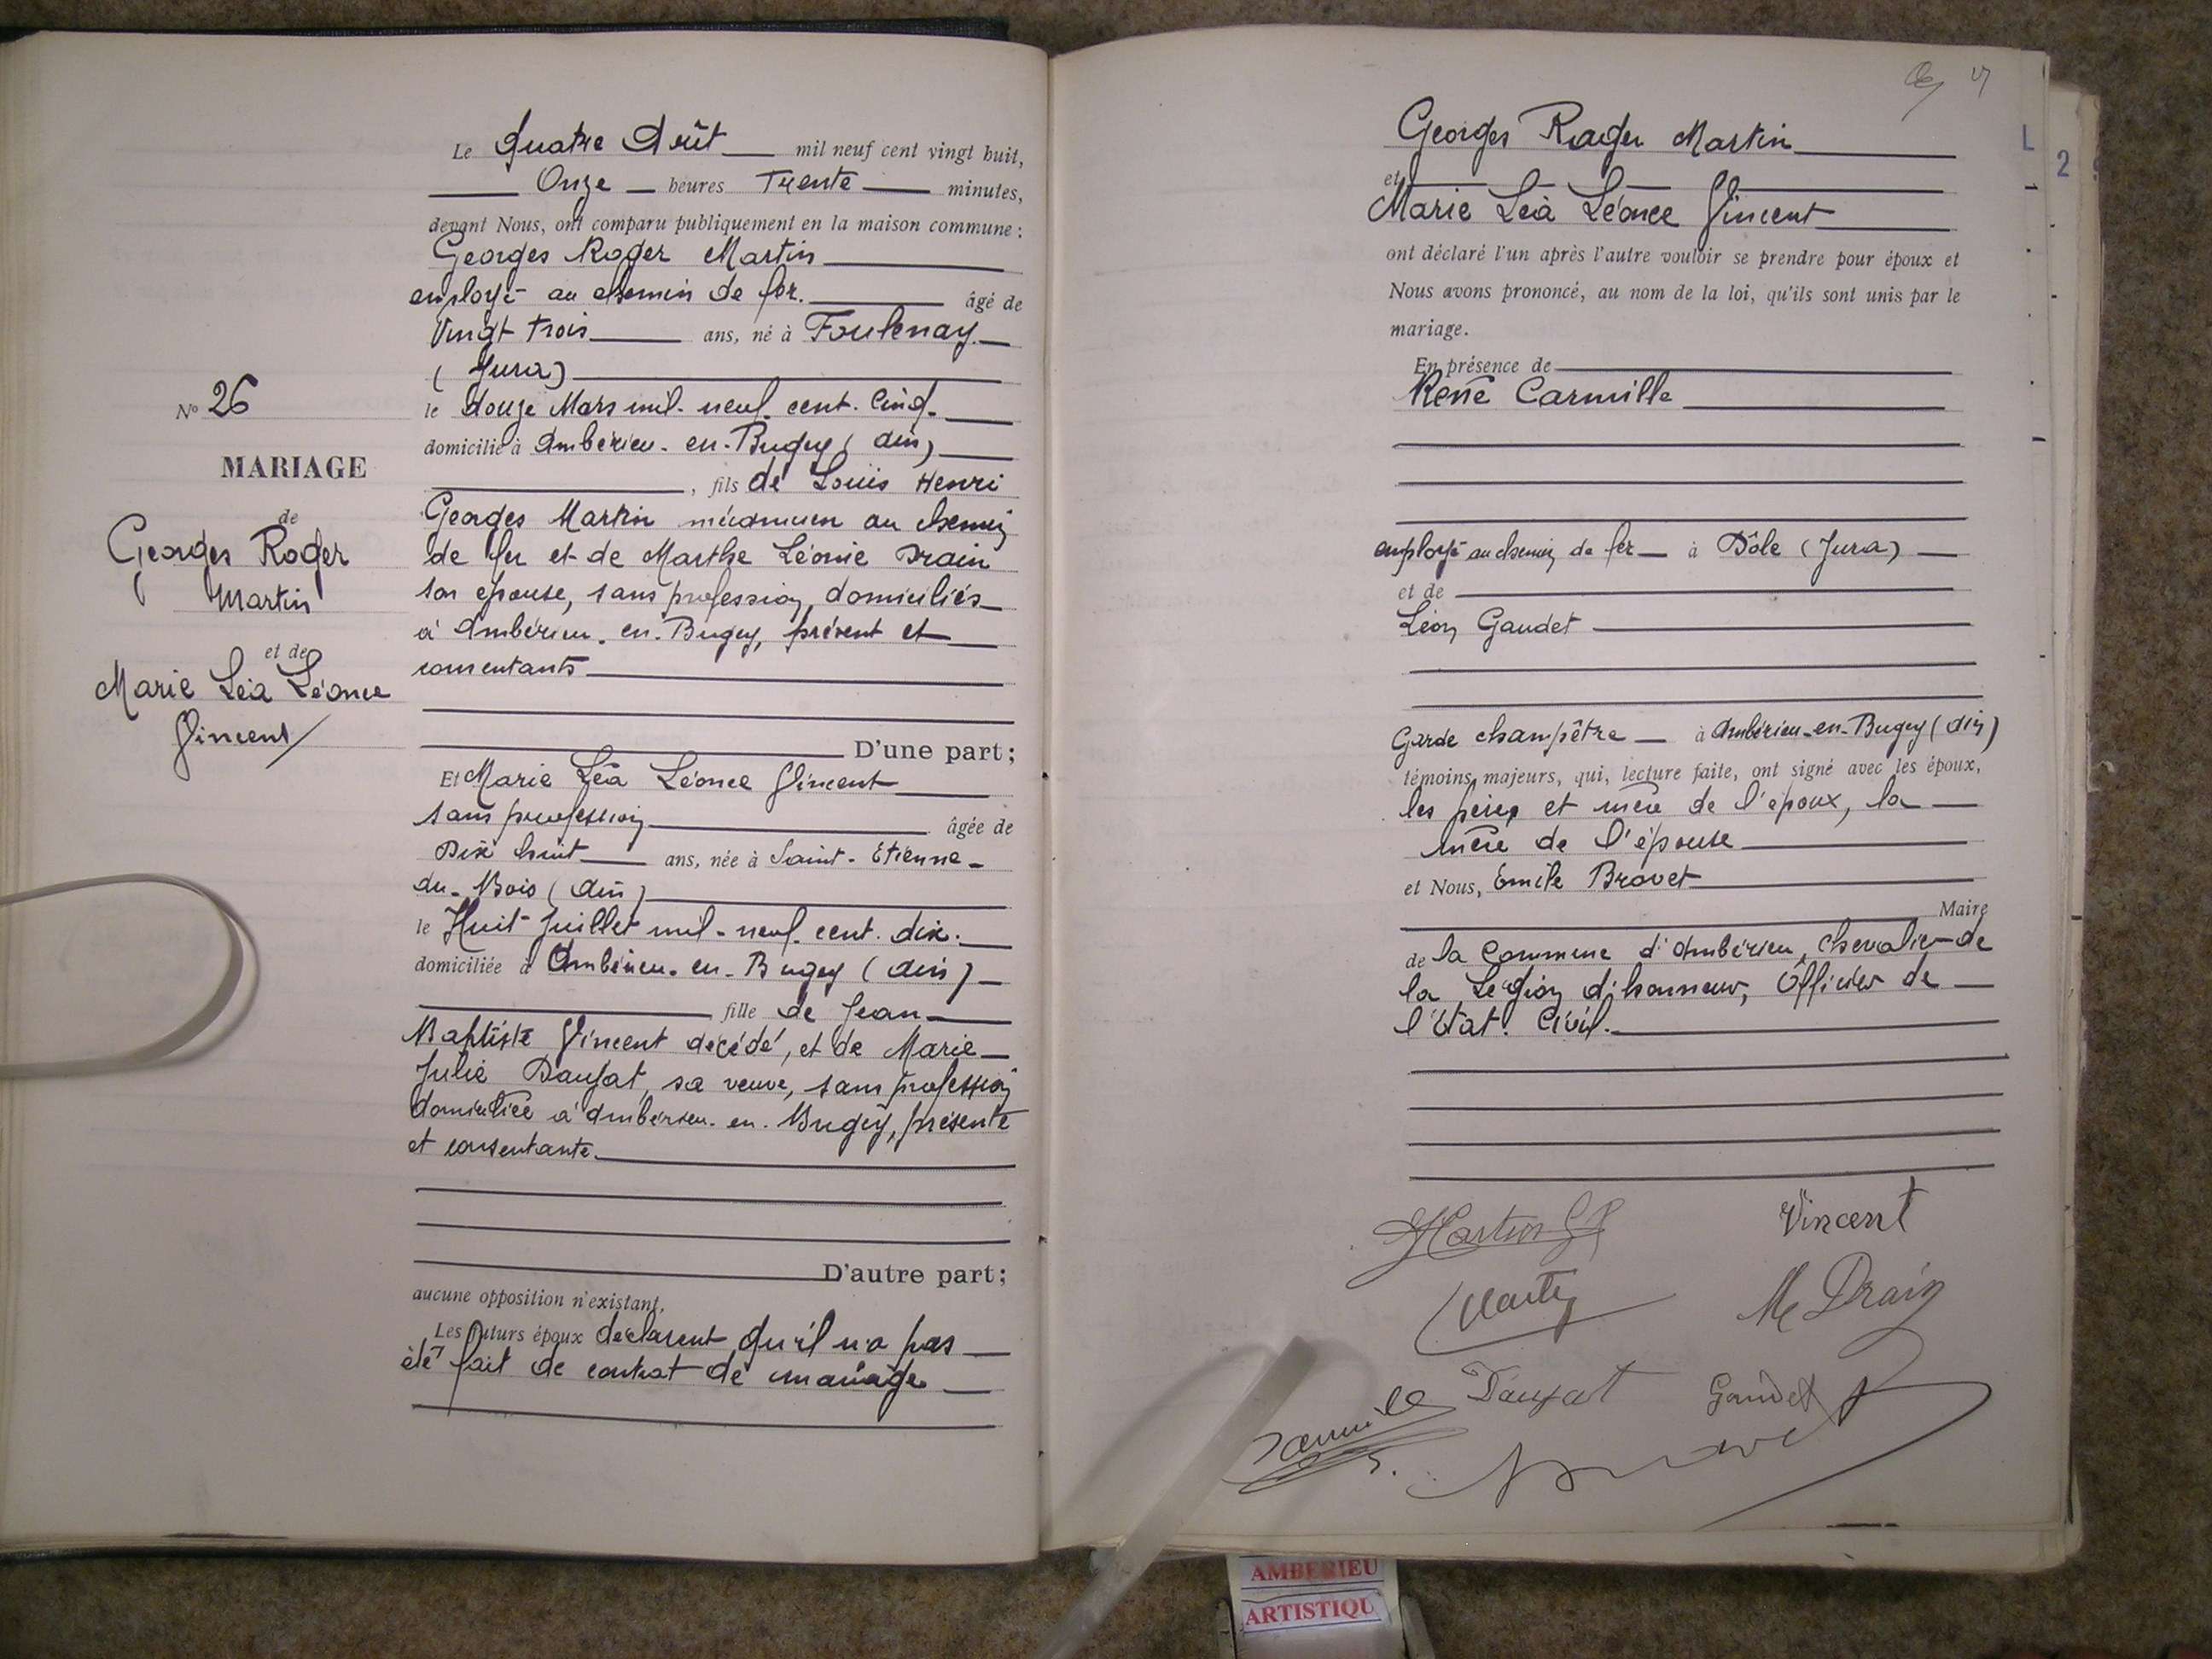 N° 26
MARIAGE
de
Georges Roger
Martin
et de
Marie Léa Léonce
Vincent
Le Quatre Août mil neuf cent vingt huit,
Onze heures Trente minutes,
devant Nous, ont comparu publiquement en la maison commune :
Georges Roger Martin
employé au chemin de fer. âgé de
Vingt trois ans, né à Foulenay
(Jura)
le douze Mars mil-neuf-cent-cinq.
domicilié à Ambérieu-en-Bugey (Ain)
, fils de Louis Henri
Georges Martin mécanicien au chemin
de fer et de Marthe Léonie Drain
son épouse, sans profession, domiciliés
à Ambérieu-en-Bugey, présent et
consentants
D'une part ;
Et Marie Léa Léonce Vincent
sans profession âgée de
Dix huit ans, née à Saint-Etienne-
du-Bois (Ain)
le Huit Juillet mil-neuf-cent-dix.
domiciliée à Ambérieu-en-Bugey (Ain)
fille de Jean
Baptiste Vincent décédé, et de Marie
Julie Daujat, sa veuve, sans profession
domiciliée à Ambérieu-en-Bugey, présente
et consentante.
D'autre part ;
aucune opposition n'existant,
Les futurs époux déclarent qu'il n'a pas
été fait de contrat de mariage
Georges Roger Martin
et
Marie Léa Léonce Vincent
ont déclaré l'un après l'autre vouloir se prendre pour époux et
Nous avons prononcé, au nom de la loi, qu'ils sont unis par le
mariage.
En présence de
René Carmille
employé au chemin de fer à Dôle (Jura)
et de
Léon Gaudet
Garde champêtre à Ambérieu-en-Bugey (Ain)
témoins majeurs, qui, lecture faite, ont signé avec les époux,
les père et mère de l'époux, la
mère de l'épouse
et Nous, Emile Bravet
Maire
de la Commune d'Ambérieu, Chevalier de
la Légion d'honneur, Officier de
l'Etat-Civil.
Martin GR Vincent
Martin M Drain
Carmille Daujat Gaudet
Bravet
L
2
AMBERIEU
ARTISTIQU